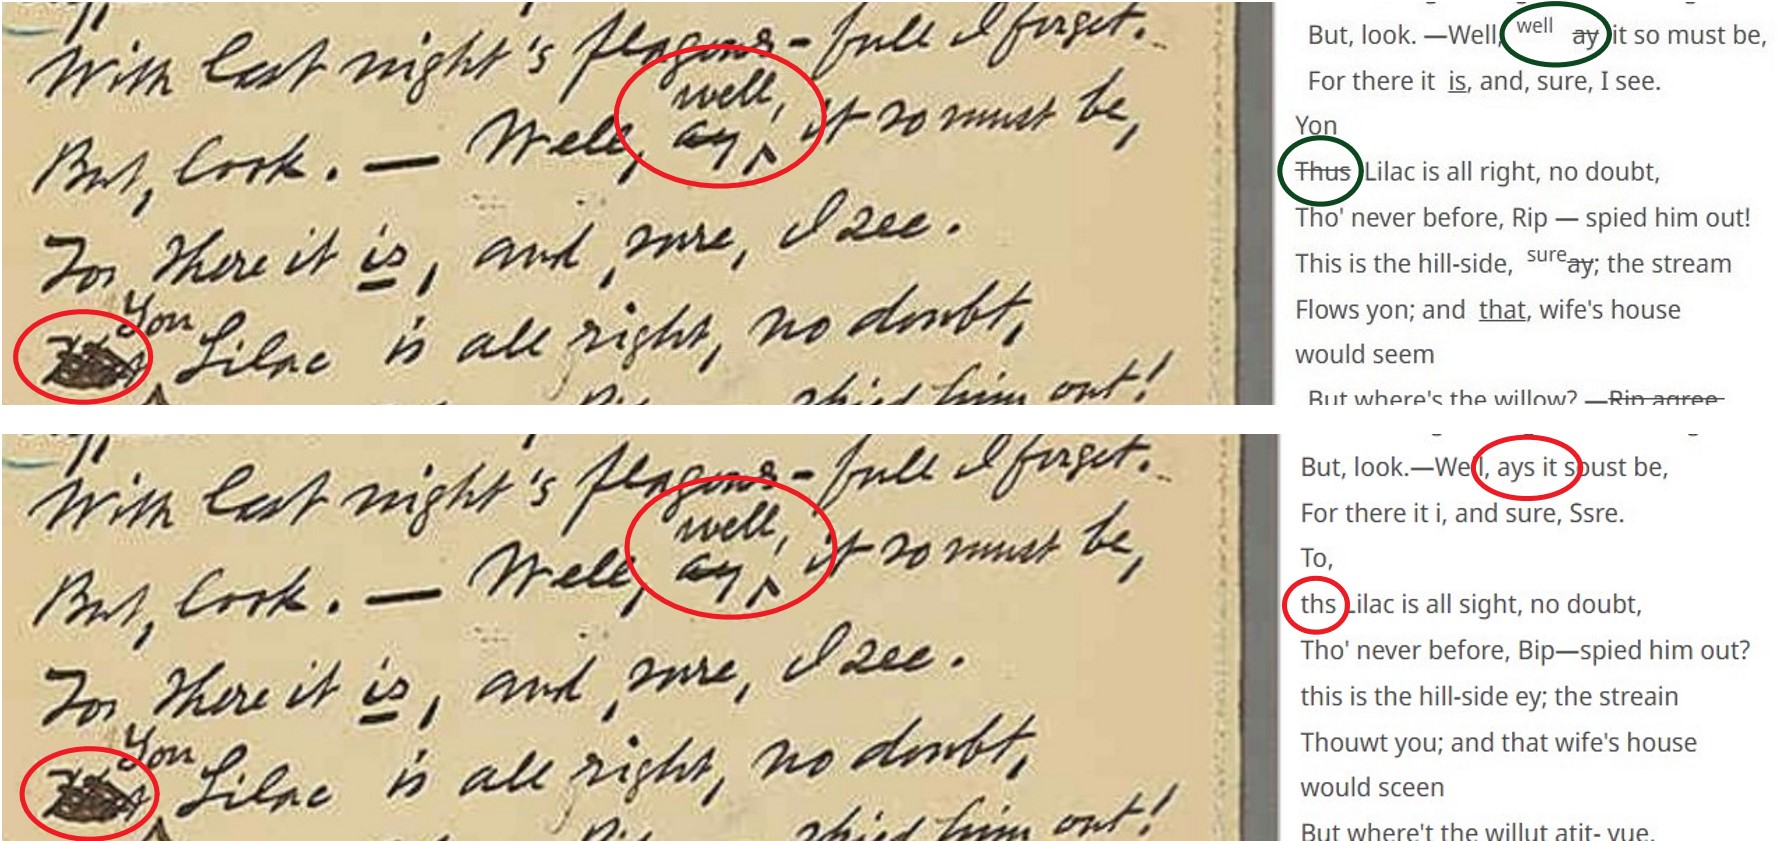 With last night's flagons-full I forget.
well,
But, look. — Well, ay, it so must be,
For there it is, and, sure, I see.
Yon
Lilac is all right, no doubt,
spied him out!
But, look. —Well, well ay it so must be,
For there it is, and, sure, I see.
Yon
Thus Lilac is all right, no doubt,
Tho' never before, Rip — spied him out!
This is the hill-side, sure ay; the stream
Flows yon; and that, wife's house
would seem
But where's the willow? —Rip agree
With last night's flagons-full I forget.
well,
But, look. — Well, ay, it so must be,
For there it is, and, sure, I see.
Yon
Lilac is all right, no doubt,
spied him out!
But, look.—Well, ays it spust be,
For there it i, and sure, Ssre.
To,
ths Lilac is all sight, no doubt,
Tho' never before, Bip—spied him out?
this is the hill-side ey; the streain
Thouwt you; and that wife's house
would sceen
But where't the willut atit- vue.